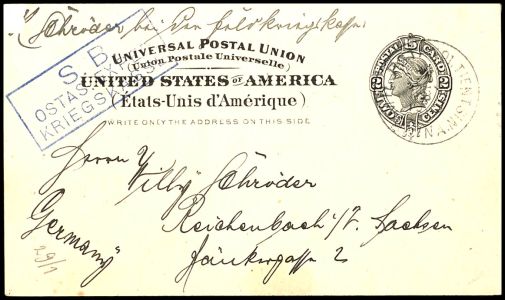 Schröder bei der Feldkriegskasse
UNIVERSAL POSTAL UNION
(Union Postale Universelle)
UNITED STATES OF AMERICA
(États-Unis d'Amérique)
WRITE ONLY THE ADDRESS ON THIS SIDE
S. B.
OSTAS.
KRIEGS
POSTAL CARD
TWO CENTS
TIENTSIN
Herrn
Willy Schröder
Reichenbach i/V. Sachsen
2
Germany
29/1